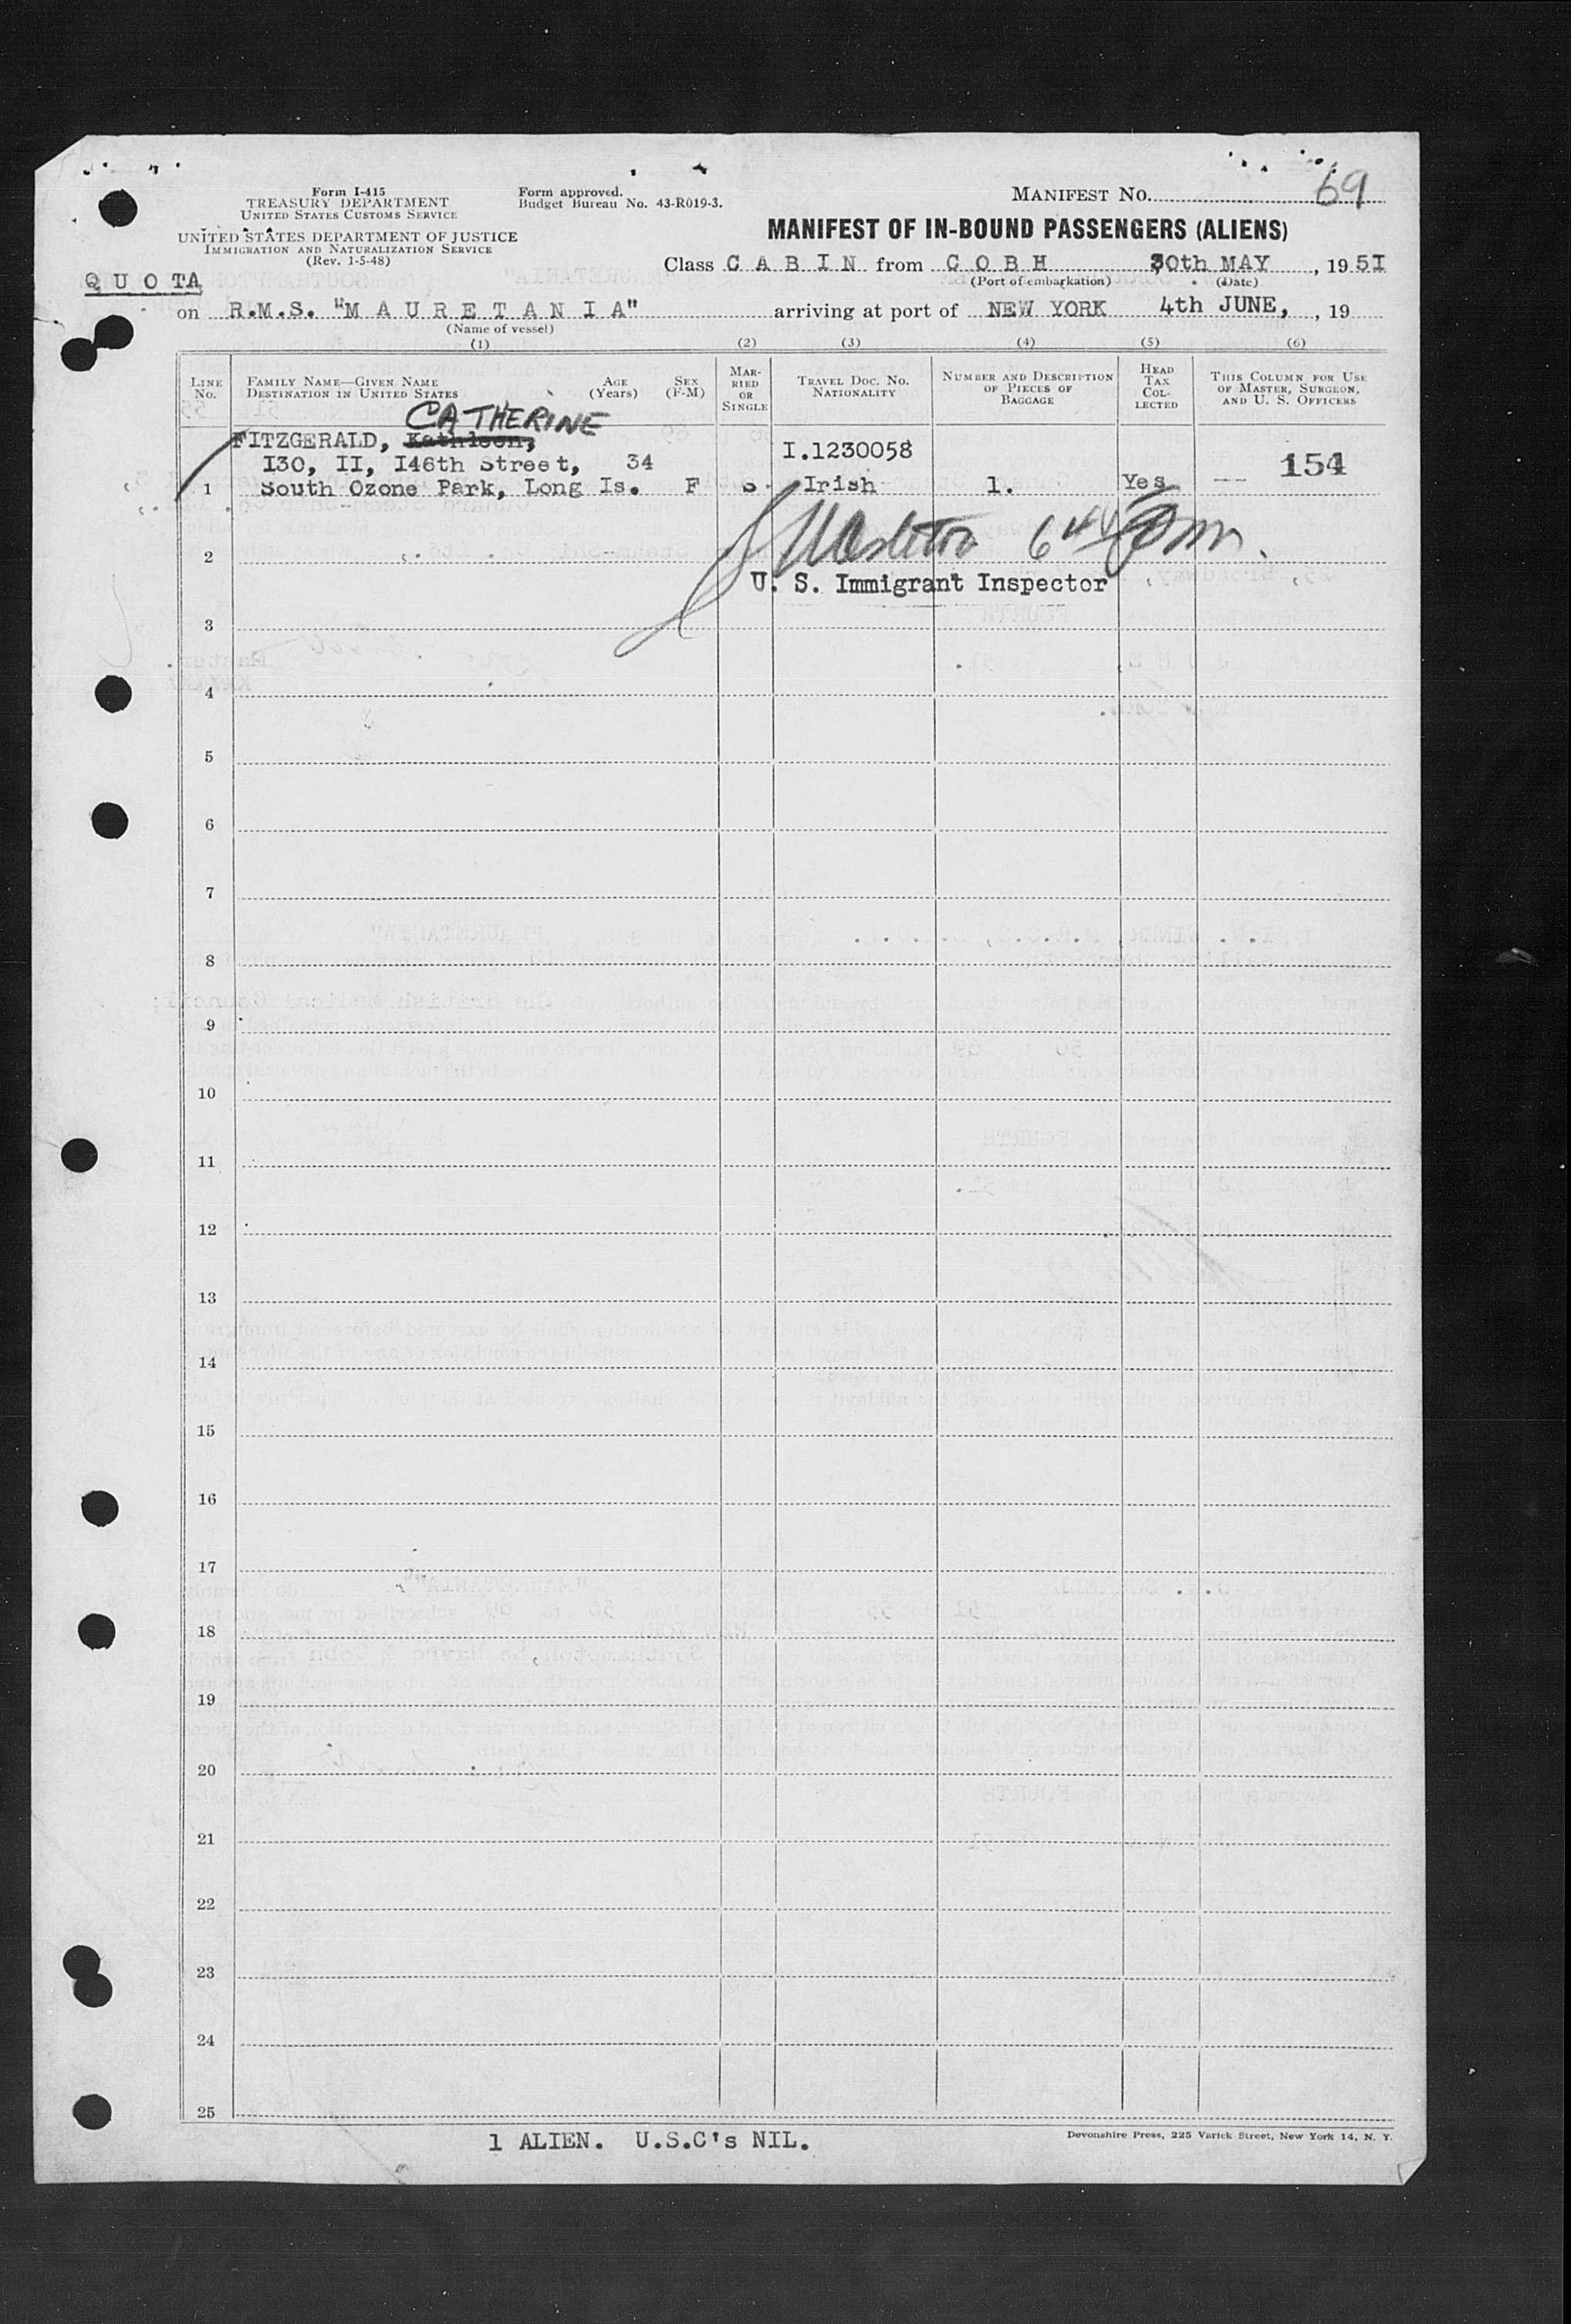 Form I-415
TREASURY DEPARTMENT
UNITED STATES CUSTOMS SERVICE
UNITED STATES DEPARTMENT OF JUSTICE
IMMIGRATION AND NATURALIZATION SERVICE
(Rev. 1-5-48)
Form approved.
Budget Bureau No. 43-R019-3.
MANIFEST NO. 69
MANIFEST OF IN-BOUND PASSENGERS (ALIENS)
QUOTA
Class CABIN from COBH 30th MAY, 1951
(Port of embarkation) (Date)
on R.M.S. "MAURETANIA" arriving at port of NEW YORK 4th JUNE, , 19
(Name of vessel)
(1) (2) (3) (4) (5) (6)
LINE NO.
FAMILY NAME—GIVEN NAME
DESTINATION IN UNITED STATES
AGE (Years)
SEX (F-M)
MARRIED OR SINGLE
TRAVEL DOC. NO.
NATIONALITY
NUMBER AND DESCRIPTION OF PIECES OF BAGGAGE
HEAD TAX COLLECTED
THIS COLUMN FOR USE OF MASTER, SURGEON, AND U. S. OFFICERS
CATHERINE
FITZGERALD, Kathleen, I.1230058
I30, II, I46th Street, 34 154
1 South Ozone Park, Long Is. F S. Irish 1. Yes --
2
U. S. Immigrant Inspector
3
4
5
6
7
8
9
10
11
12
13
14
15
16
17
18
19
20
21
22
23
24
25
1 ALIEN. U.S.C's NIL.
Devonshire Press, 225 Varick Street, New York 14, N. Y.